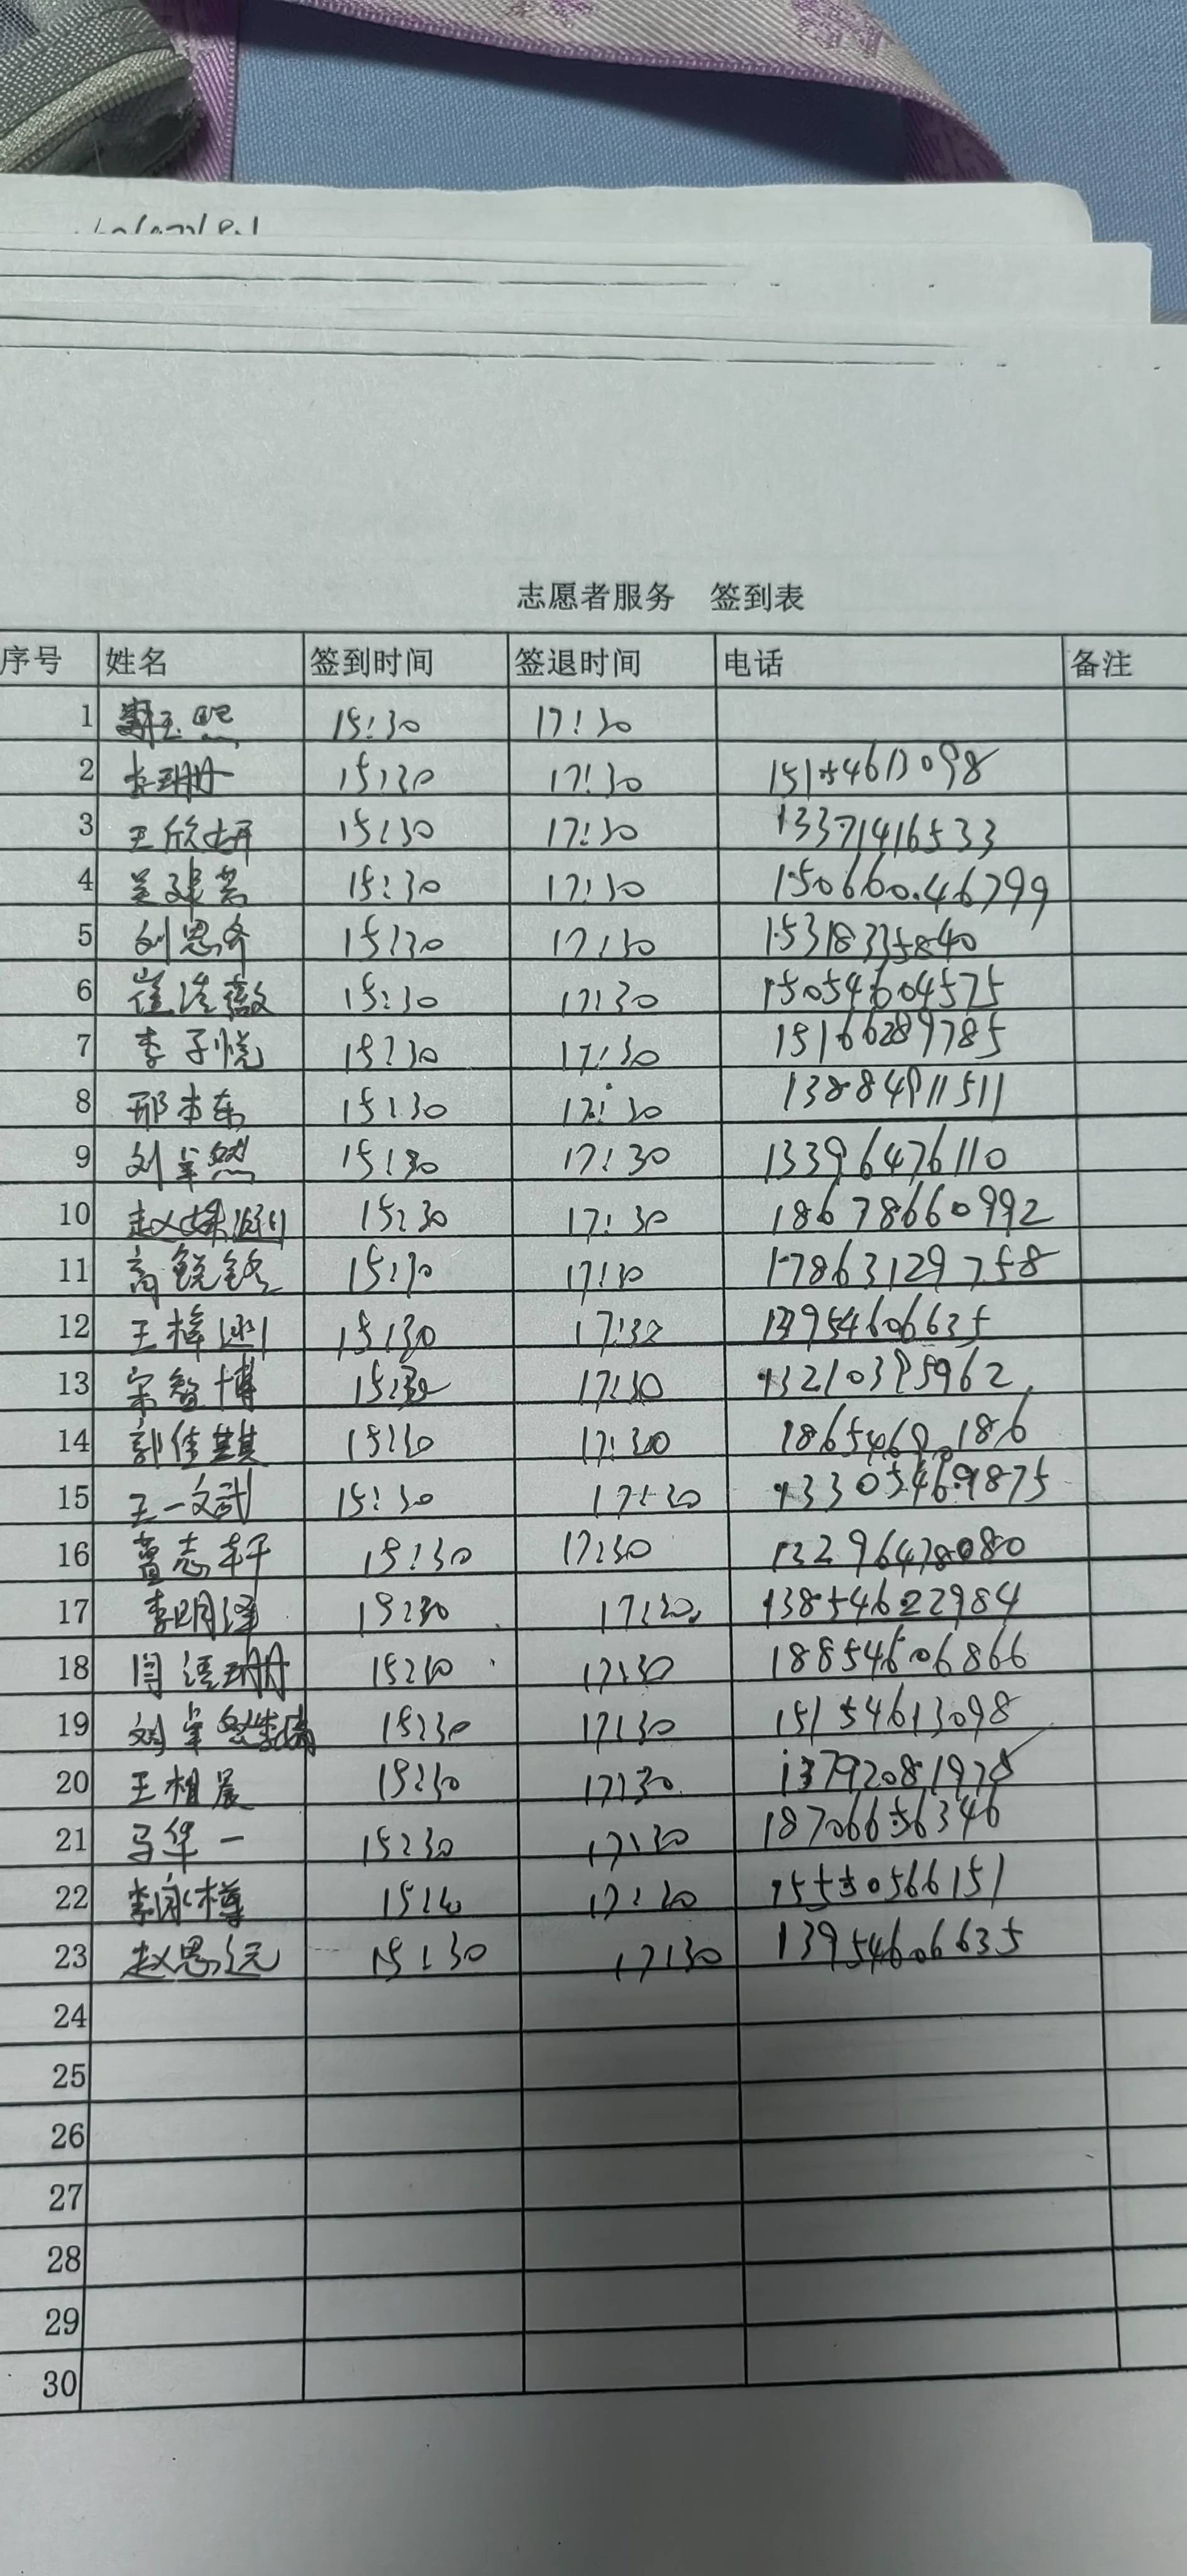 志愿者服务 签到表
序号 姓名 签到时间 签退时间 电话 备注
1 15:30 17:30
2 李珊珊 15:30 17:30 15154613098
3 王欣妍 15:30 17:30 13371416533
4 15:30 17:30 150660.46799
5 刘思齐 15:30 17:30 15318335840
6 崔 15:30 17:30 15054604575
7 李子悦 15:30 17:30 15166289785
8 邢本东 15:30 17:30 13884911511
9 刘芈然 15:30 17:30 13396476110
10 赵 15:30 17:30 18678660992
11 高锐铭 15:30 17:30 17863129758
12 王梓 15:30 17:30 13954606635
13 宋智博 15:30 17:30 13210395962
14 郭佳其 15:30 17:30 186546 186
15 王一 15:30 17:30 13305469875
16 志轩 15:30 17:30
17 李明泽 15:30 17:30 13854622984
18 闫 珊 15:30 17:30 18854606866
19 刘 15:30 17:30 15154613098
20 王相晨 15:30 17:30 13792081978
21 马华一 15:30 17:30 18706656346
22 李 樽 15:30 17:30 15550566151
23 赵思远 15:30 17:30 13954606635
24
25
26
27
28
29
30